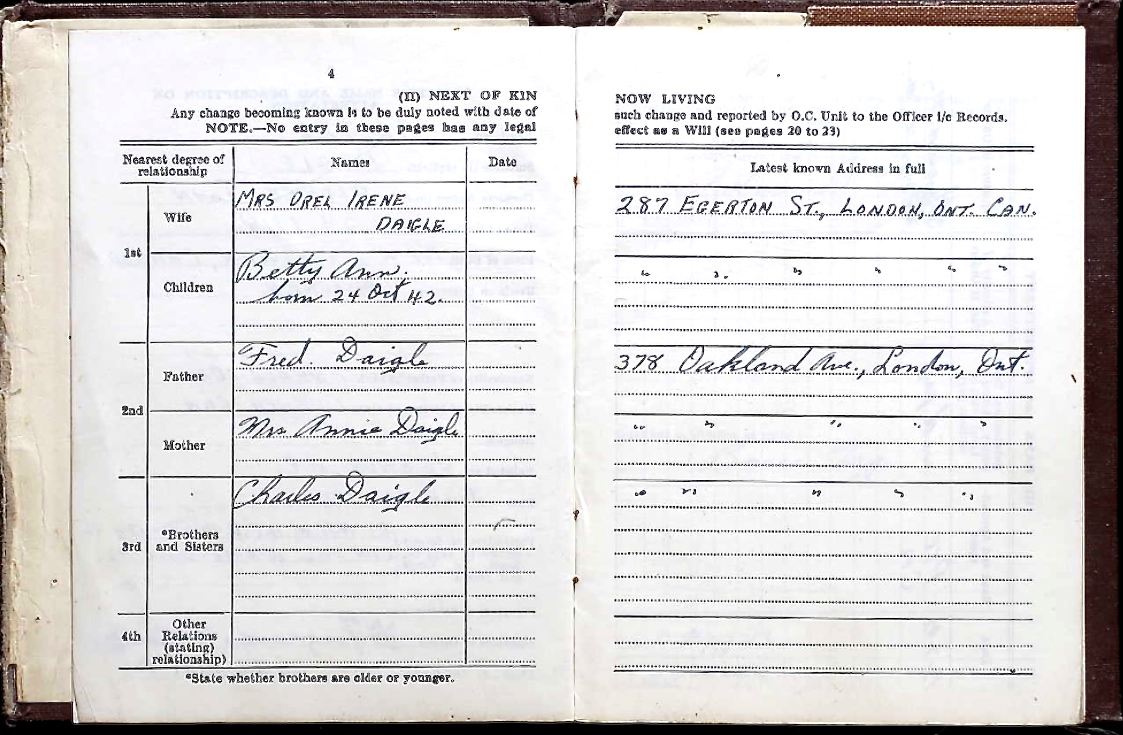 4
(II) NEXT OF KIN
Any change becoming known is to be duly noted with date of
NOTE.—No entry in these pages has any legal
Nearest degree of relationship
Names
Date
1st
Wife
MRS OREL IRENE
DAIGLE
Children
Betty Ann.
born 24 Oct 42.
2nd
Father
Fred. Daigle
Mother
Mrs Annie Daigle
3rd
*Brothers
and Sisters
Charles Daigle
4th
Other
Relations
(stating)
relationship)
*State whether brothers are older or younger.
NOW LIVING
such change and reported by O.C. Unit to the Officer i/c Records.
effect as a Will (see pages 20 to 23)
Latest known Address in full
287 EGERTON ST., LONDON, ONT. CAN.
" " " " " "
378 Oakland Ave., London, Ont.
" " " " "
" " " " "